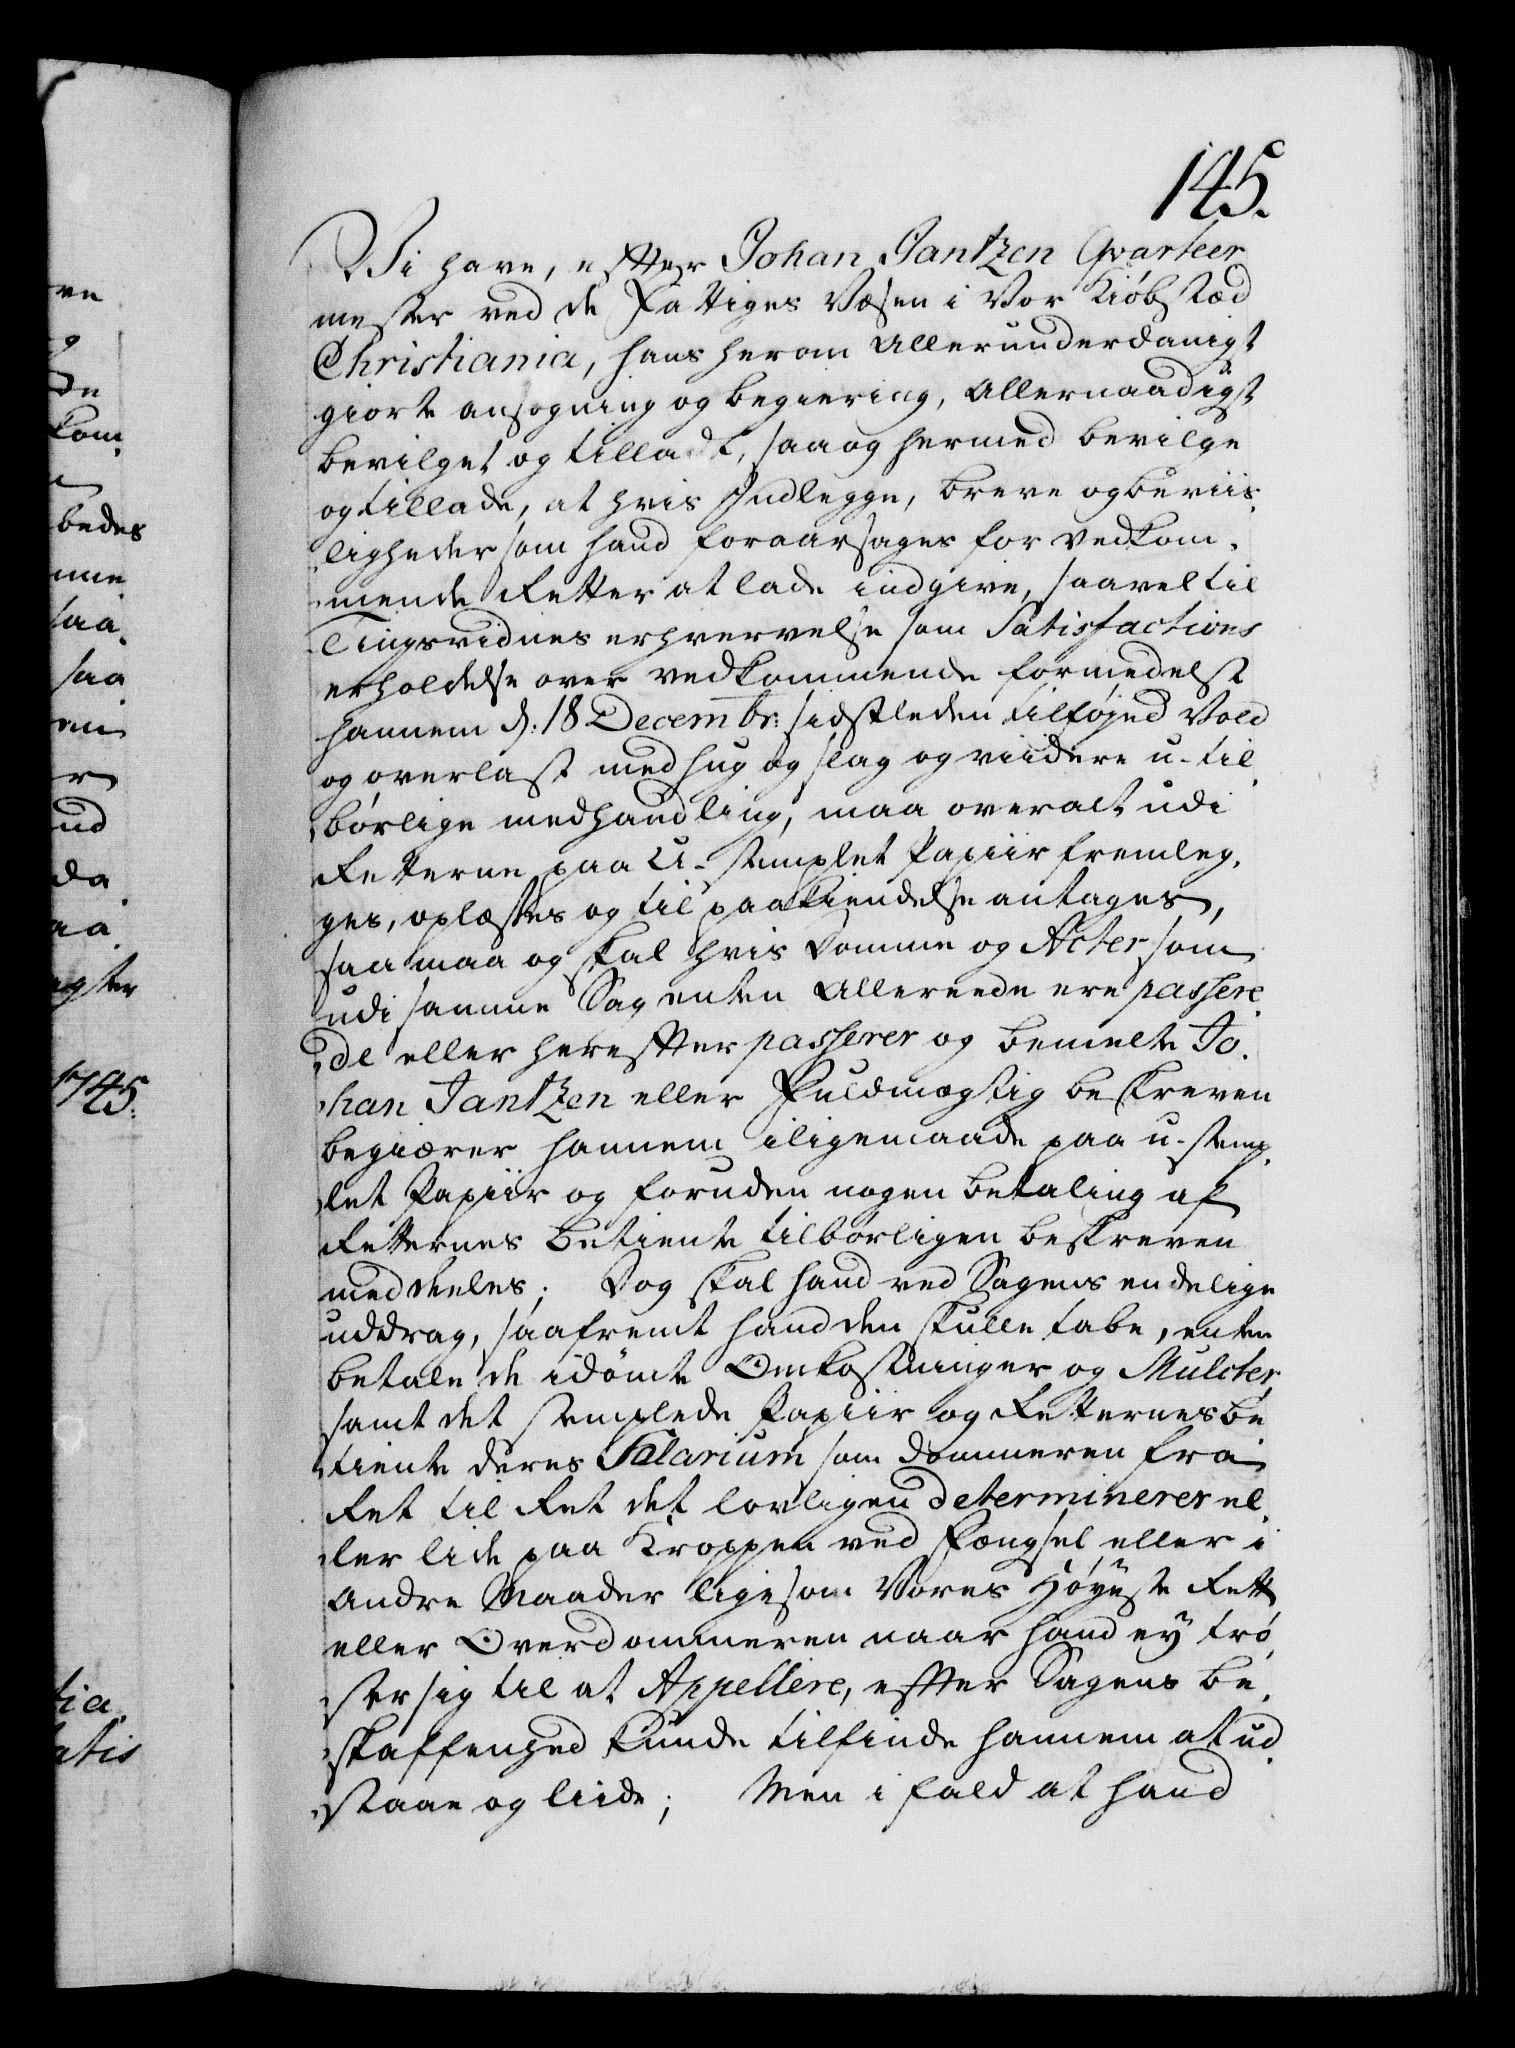 145.
Vi have, efter Johan Jantzen Qvarteer
mester ved de Fattiges Væsen i Vor Kiøbstæd
Christiania, hans herom Allerunderdanigst
giorte ansøgning og begiering, Allernaadigst
bevilget og tilladt, saa og hermed bevilge
og tillade, at hvis Indlegge, breve og beviis
ligheder som hand foraarsages for vedkom-
mende Retter at lade indgive, saavel til
Tingsvidnes erhvervelse som Satisfactions
erholdelse over vedkommende formedelst
hannem d: 18 Decembr: sidstleden tilføjed Vold
og overlast med hug og slag og viidere u-til
børlige medhandling, maa overalt udi
Retterne paa U-stemplet Papiir fremleg-
ges, oplæses og til paakiendelse antages,
saa maa og skal hvis Domme og Acter som
udi samme Sag enten Allereede ere passere
de eller herefter passerer og bemelte Jo-
han Jantzen eller Fuldmægtig beskreven
begiærer hannem iligemaade paa u-stemp-
let Papiir og foruden nogen betaling af
Retternes betiente tilbørligen beskreven
meddeeles; Dog skal hand ved Sagens endelige
uddrag, saafremt hand den skulle tabe, enten
betale de idømte Omkostninger og Mulcter,
samt det stemplede Papiir og Retternes be
tiente deres Salarium som dommeren fra
Ret til Ret det lovligen determinerer el-
ler lide paa Kroppen ved Fængsel eller i
andre Maader ligesom Vores Høyeste Rett
eller Overdommeren naar hand ey trø
ster sig til at Appellere, efter Sagens be-
skaffenhed kunde tilfinde hannem at ud
staae og liide; Men i fald at hand
ve
g
de
kom
bedes
mme
saa
saa
en
er
ud
da
aa
agter
1745.
tia
atis